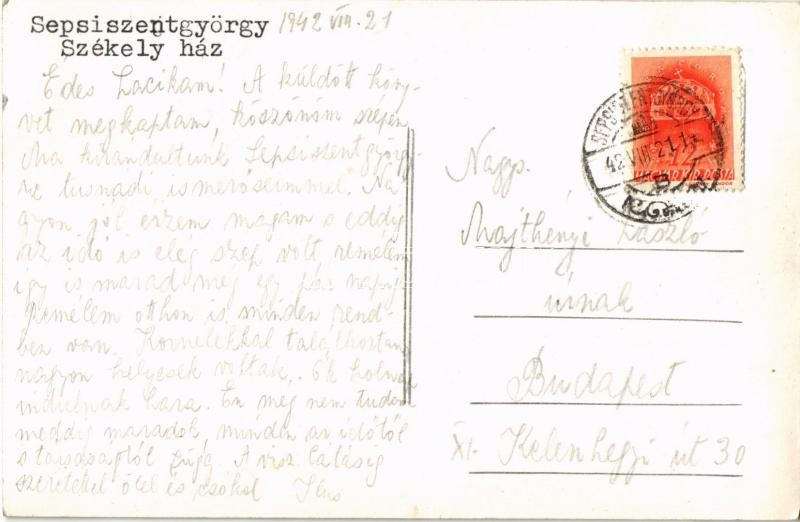 Sepsiszentgyörgy 1942 VIII. 21
Székely ház
Édes Lacikám! A küldött köny-
vet megkaptam, köszönöm szépen
Ma kirándultunk Sepsiszentgyörgy-
re tusnádi ismerőseimmel. Na
gyon jól érzem magam s eddig
az idő is elég szép volt, remélem
így is marad még egy pár napig.
Remélem otthon is minden rend-
ben van. Kornélékkal találkoztam
nagyon helyesek voltak. Ők holnap
indulnak haza. Én még nem tudom
meddig maradok, minden az időtől
s társaságtól függ. A visz látásig
szeretettel ölel és csókol Ilus
Nagys.
Majthényi László
úrnak
Budapest
XI. Kelenhegyi út 30
SEPSISZENTGYÖRGY
42 VIII 21
MAGYAR KIR. POSTA